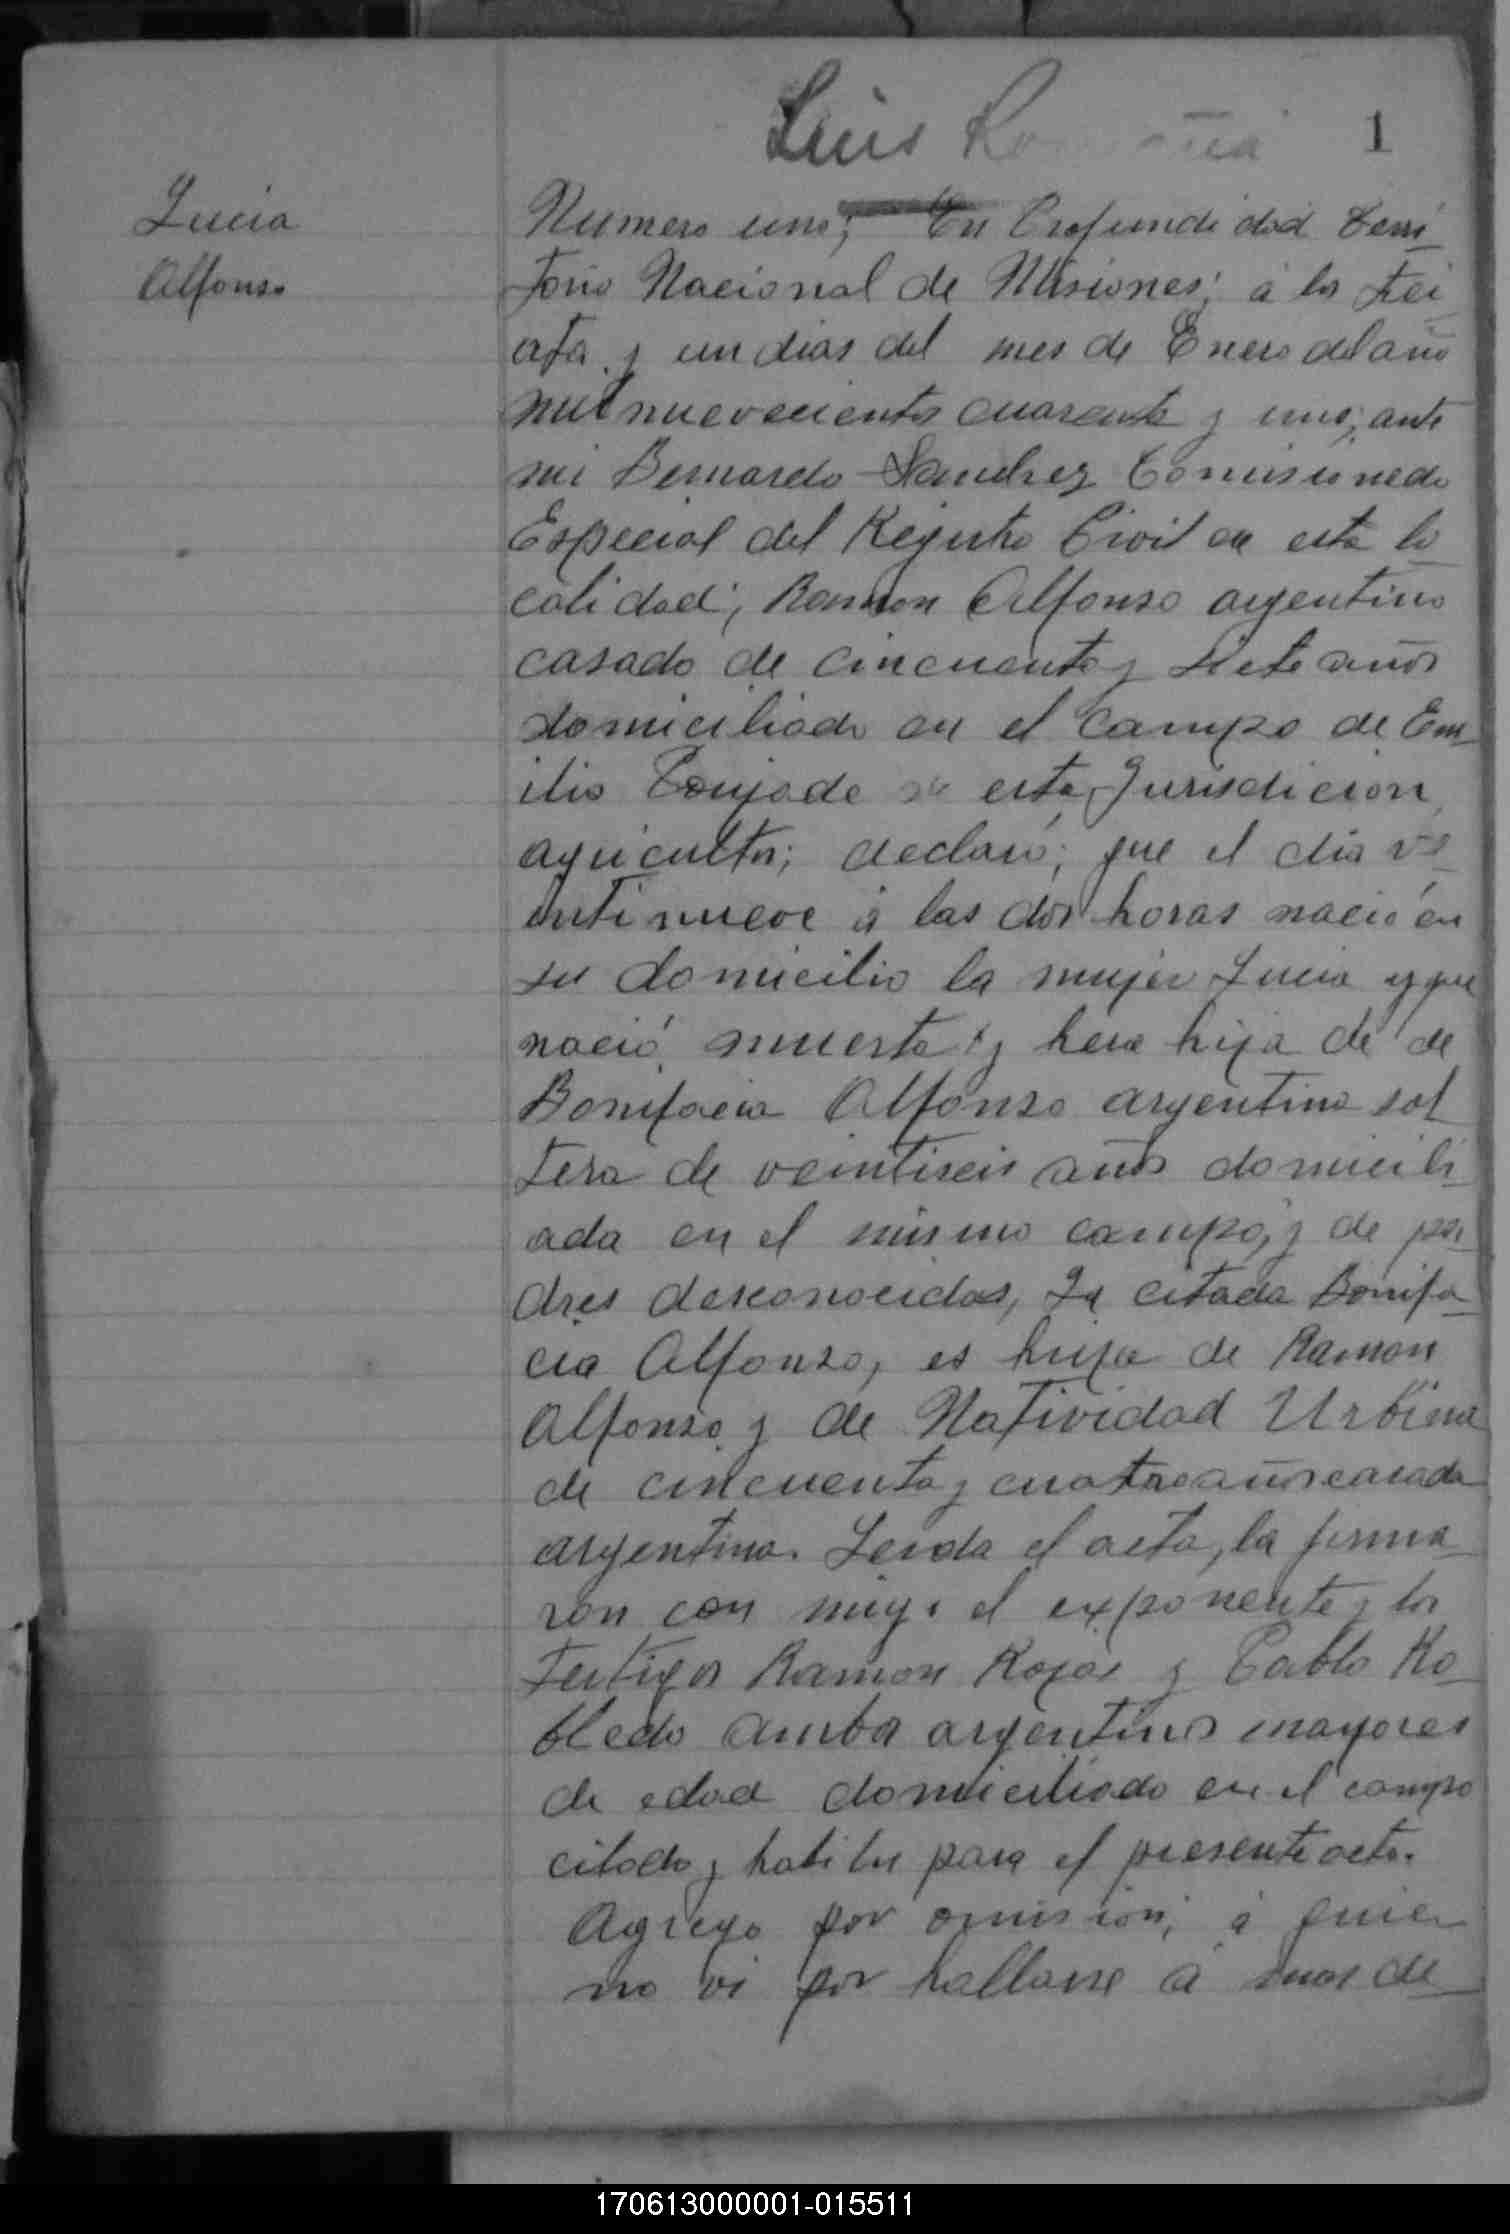 Luis
1
Lucia
Alfonso
Numero uno; En Profundidad Terri
torio Nacional de Misiones; á los trei
nta y un dias del mes de Enero del año
mil nuevecientos cuarenta y uno; ante
mi Bernardo Sanchez Comisionado
Especial del Registro Civil en esta lo
calidad; Ramon Alfonso argentino
casado de cincuenta y siete años
domiciliado en el campo de Em
ilio esta Jurisdicion
agricultor; declaró; que el dia ve
inti nueve á las dos horas nació en
su domicilio la mujer Lucia y que
nació muerta y hera hija de de
Bonifacia Alfonso argentina sol
tera de veintiseis años domicili
ada en el mismo campo, y de pa
dres desconocidos, La citada Bonifa
cia Alfonso, es hija de Ramon
Alfonso y de Natividad Urbina
de cincuenta y cuatro años casada
argentina. Leida el acta, la firma
ron con migo el exponente y los
testigos Ramon Rojas y Pablo Ro
bledo ambos argentinos mayores
de edad domiciliado en el campo
citado y habiles para el presente acto.
Agrego por omision; á quien
no vi por hallarse á mas de
170613000001-015511